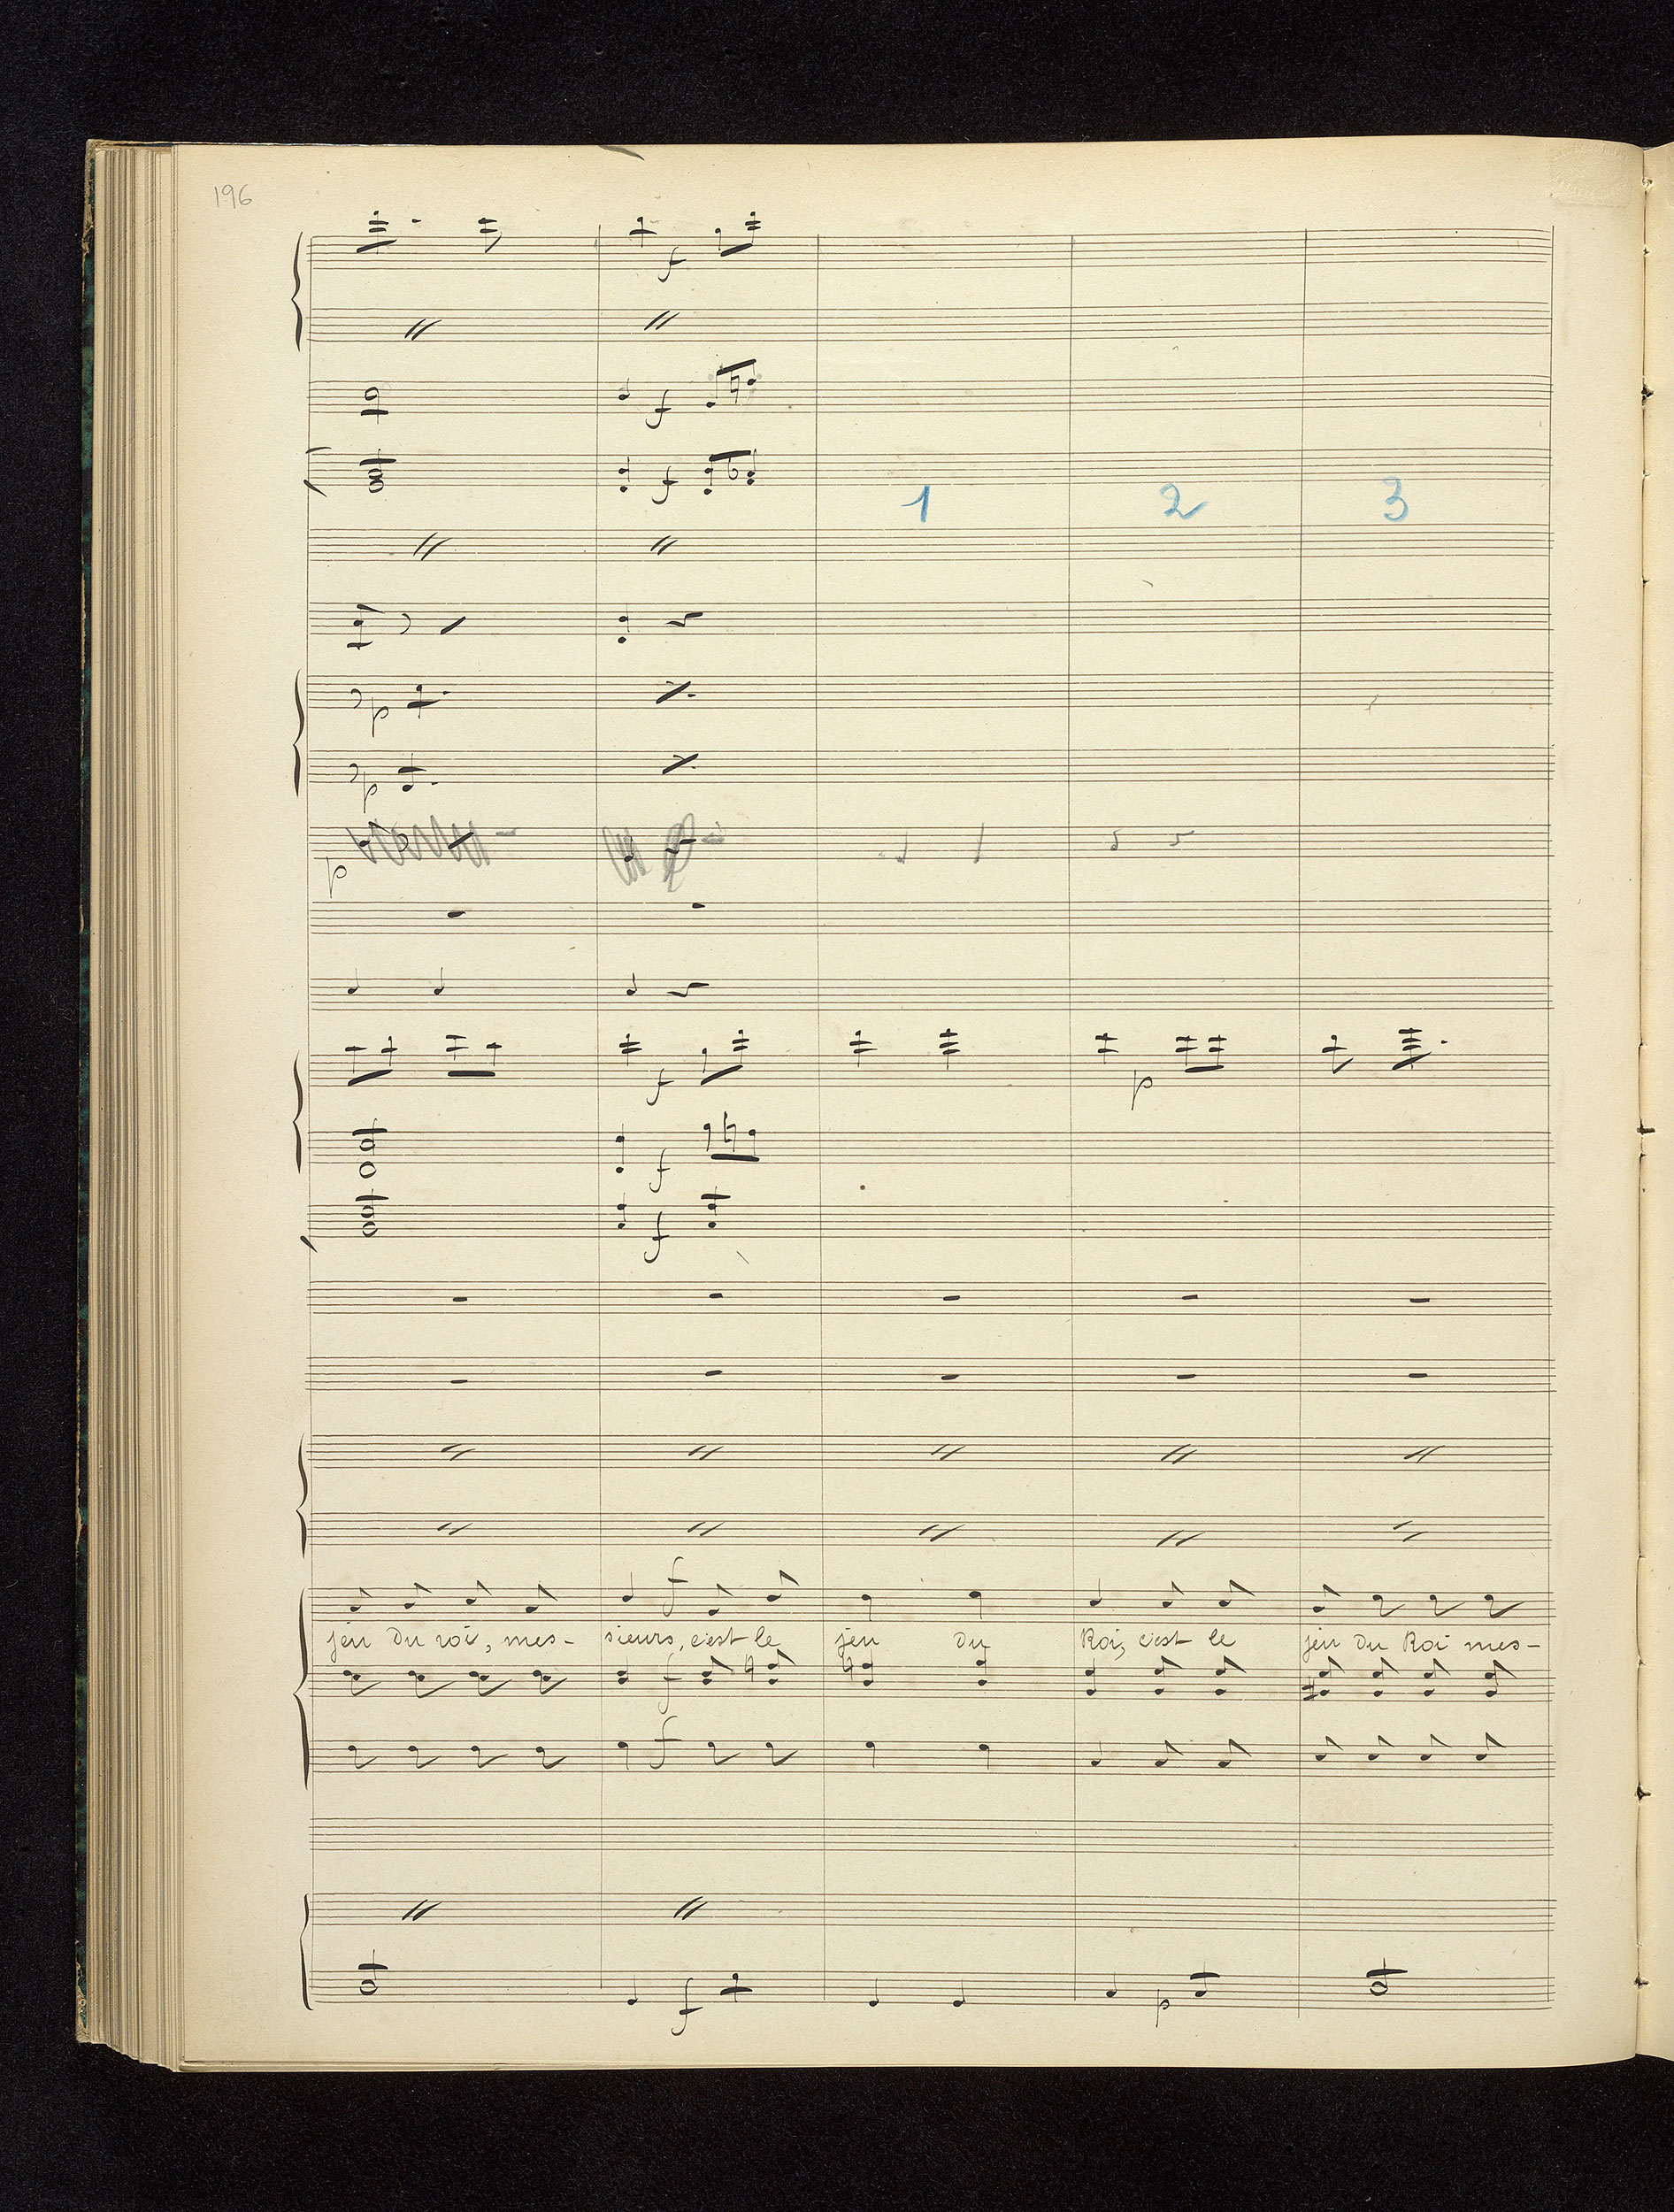 196
f
f
f
1 2 3
p
p
p
f p
f
f
f
jeu du roi, mes- sieurs, c'est le jeu du Roi, c'est le jeu du Roi mes-
f
f
f p